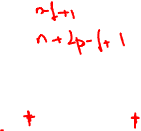 n-f+1
n+2p-f+1
+ +